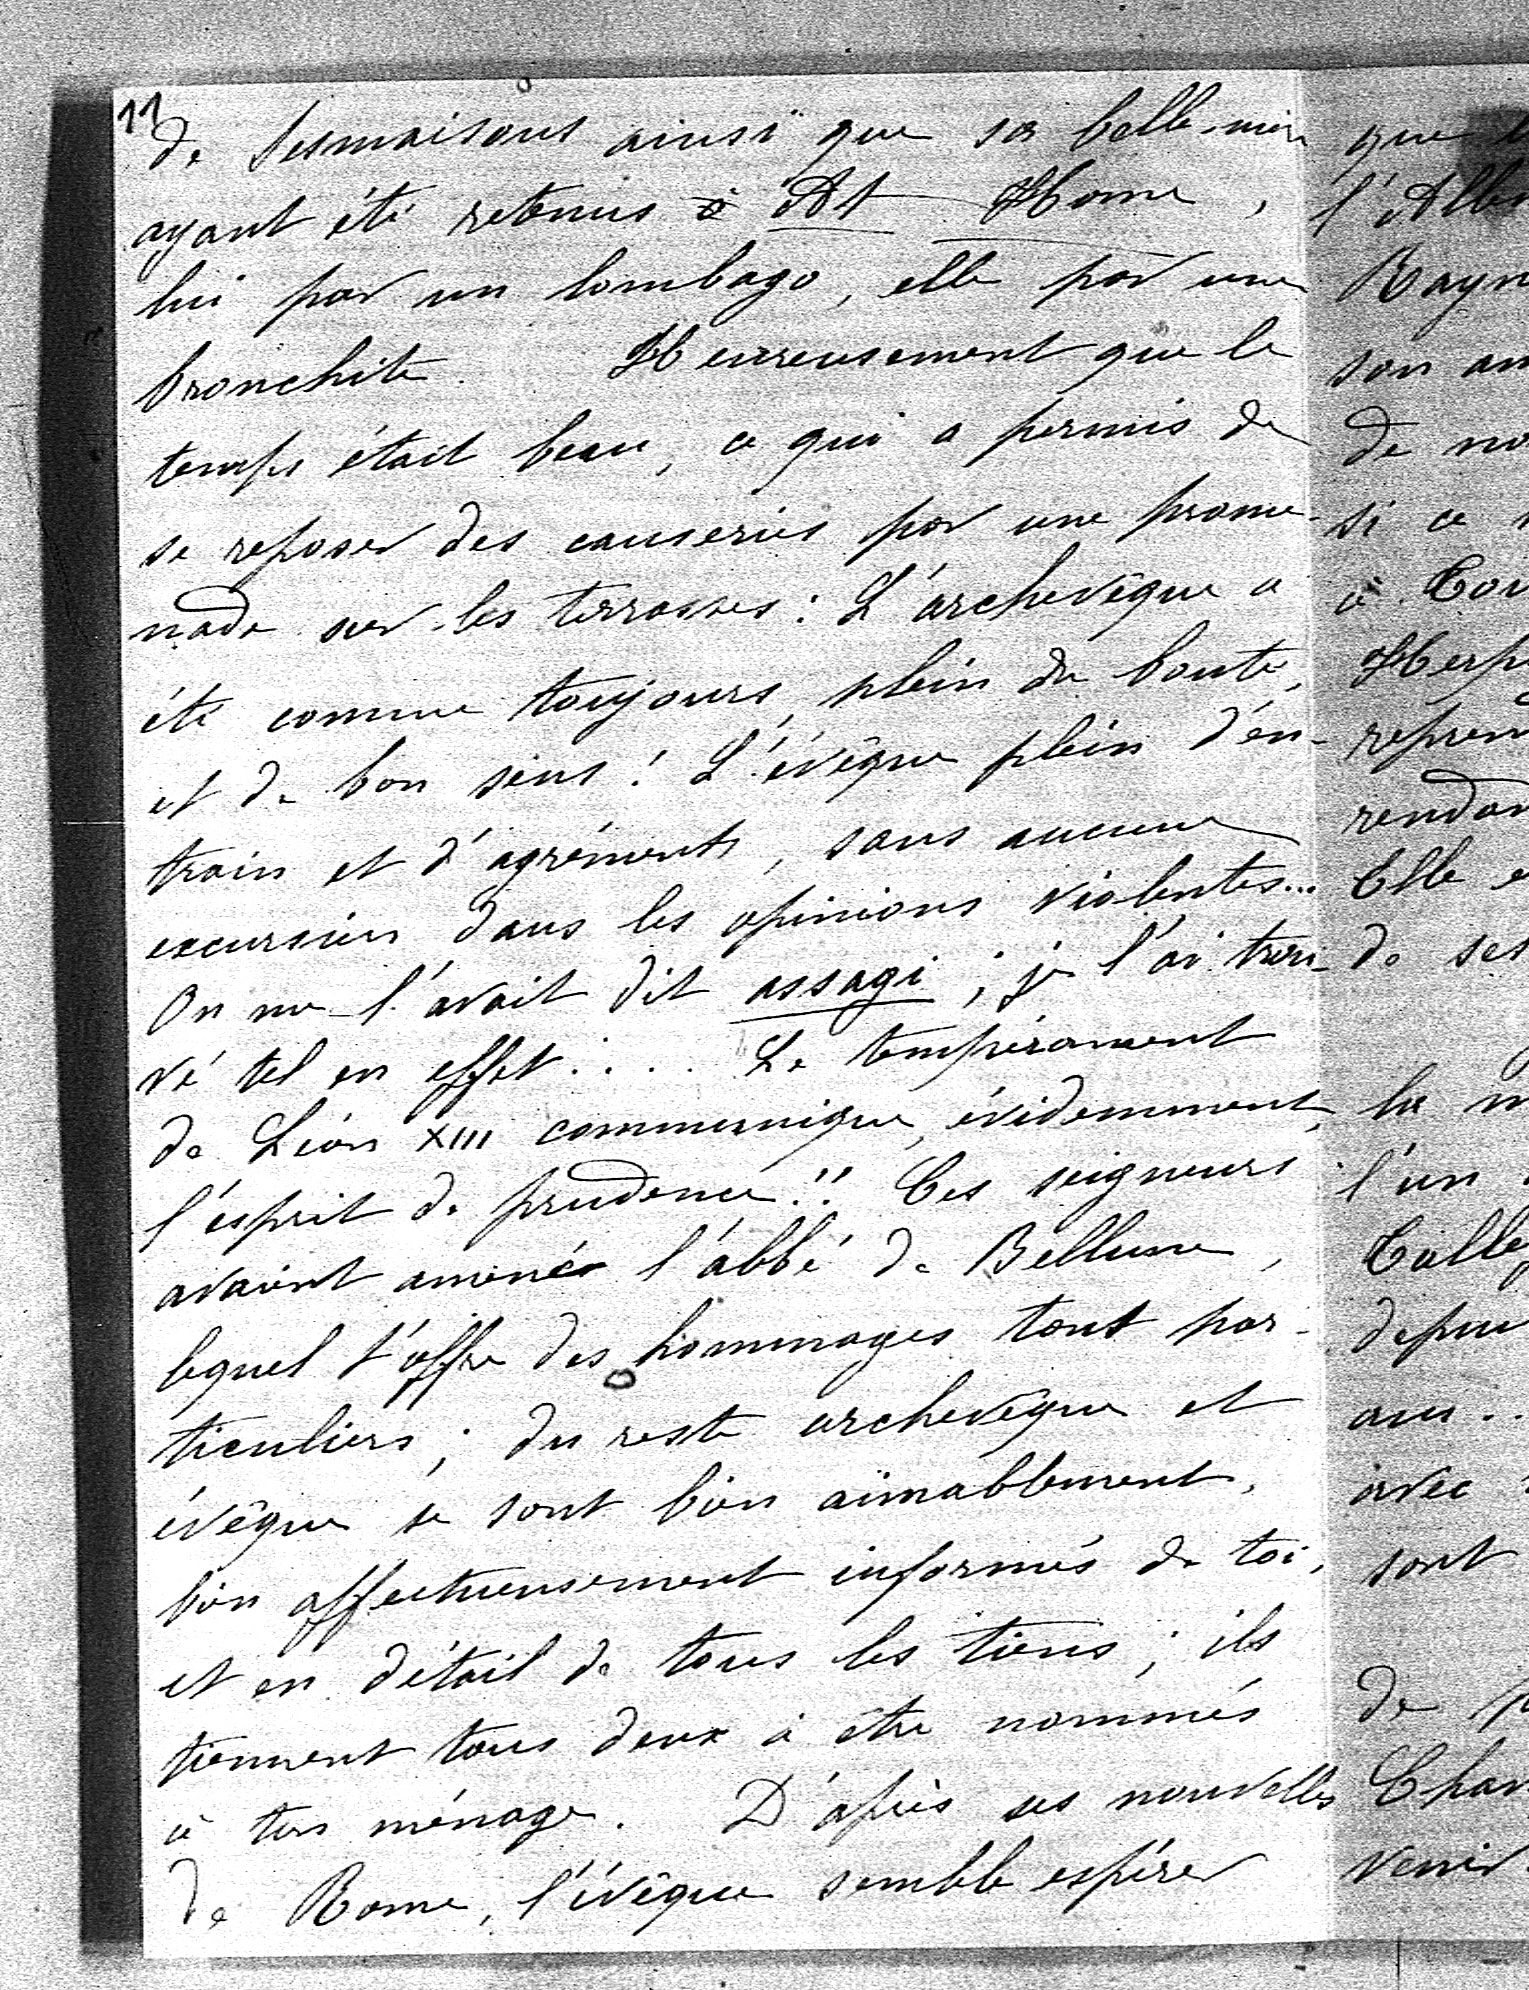 11
de Sesmaisons ainsi que sa belle-mère
ayant été retenus à At Home,
lui par un lombago, elle par une
bronchite. Heureusement que le
temps était beau, ce qui a permis de
se reposer des causeries par une prome-
nade sur les terrasses : L'archevêque a
été comme toujours, plein de bonté,
et de bon sens ! L'évêque plein d'en-
train et d'agréments, sans aucune
excursion dans les opinions violentes...
On me l'avait dit assagi ; je l'ai trou-
vé tel en effet.... Le tempérament
de Léon XIII communique, évidemment,
l'esprit de prudence !! Ces seigneurs
avaient amené l'abbé de Bellune,
lequel t'offre des hommages tout par-
ticuliers ; du reste archevêque et
évêque se sont bien aimablement,
bien affectueusement informés de toi,
et en détail de tous les tiens ; ils
tiennent tous deux à être nommés
à ton ménage. D'après ses nouvelles
de Rome, l'évêque semble espérer
que
l'Alb
Rayn
son am
de no
si ce
à Cou
Herp
repren
rendan
Elle e
de ses
la m
l'un
Calle
depui
avec
sont
de p
Char
venir